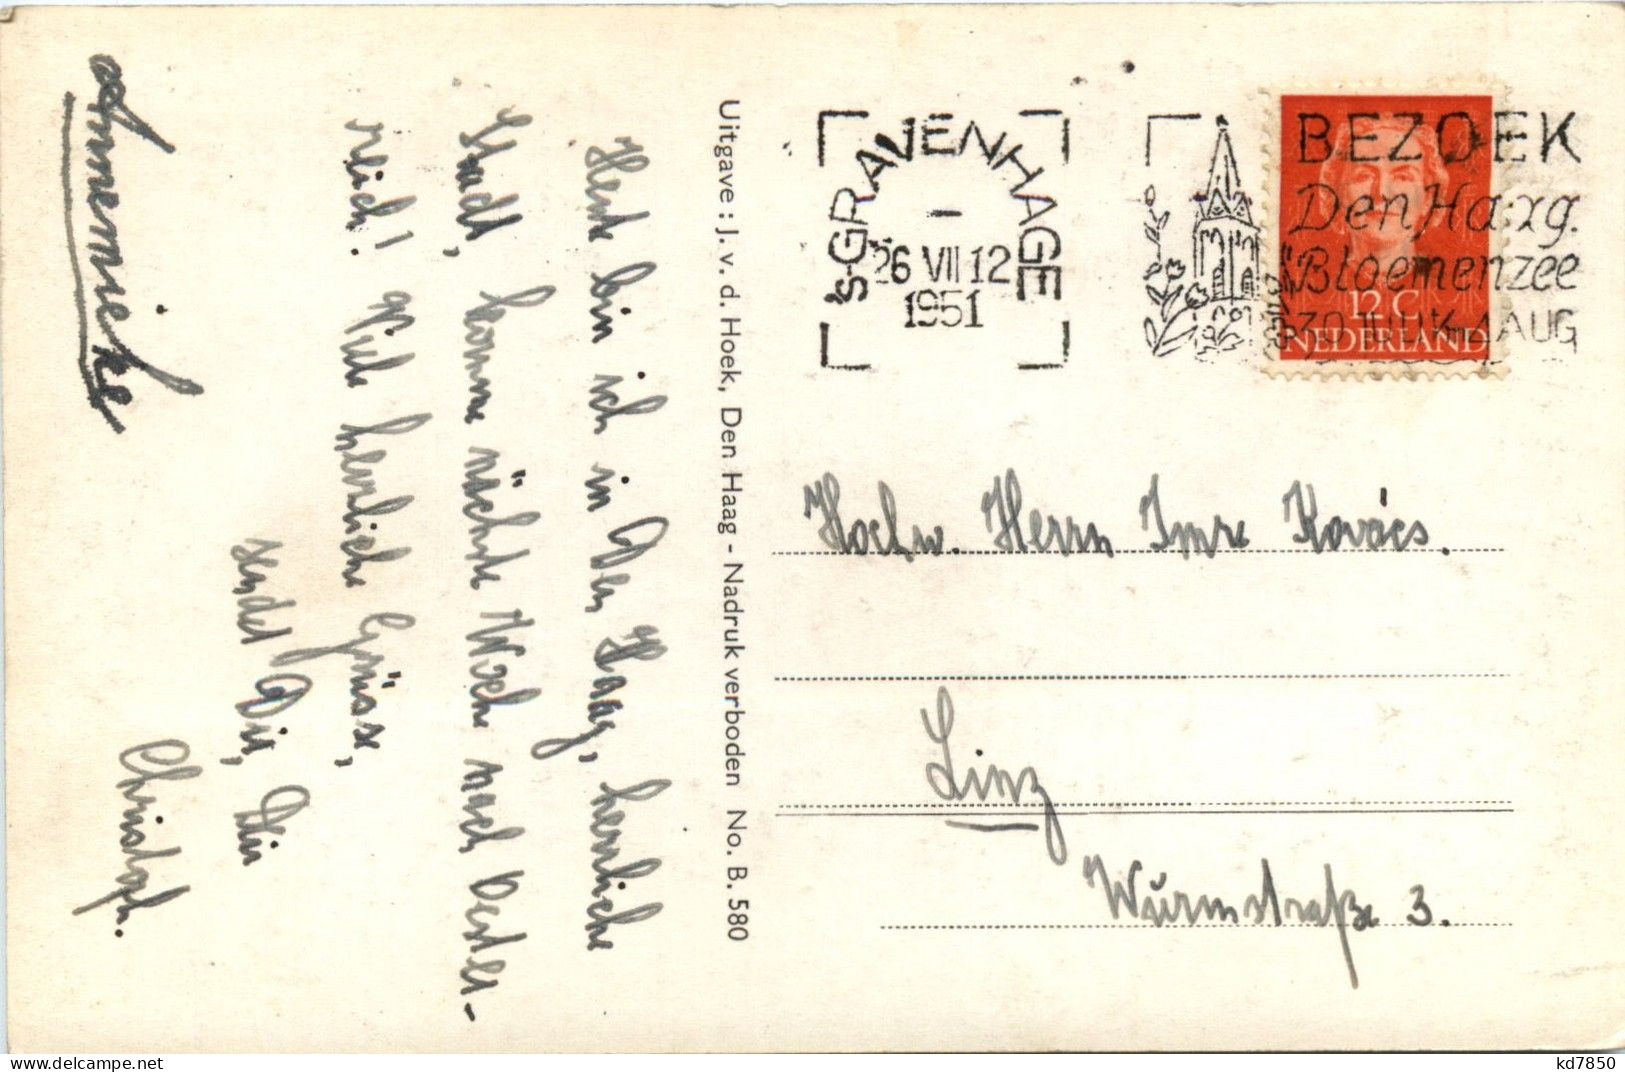 Heute bin ich in Den Haag, herrliche
Stadt, komme nächste Woche nach Oester-
reich! Viele herzliche Grüsse,
sendet Dir, Dein
Christoph.
Annemieke
Uitgave: J. v. d. Hoek, Den Haag - Nadruk verboden No. B. 580
's-GRAVENHAGE
26 VII 12
1951
BEZOEK
Den Haag.
"Bloemenzee
30 JULI - 4 AUG
12 C
NEDERLAND
Hochw. Herrn Imre Kovács.
Linz
Wŭrmstraße 3.
delcampe.net
kd7850